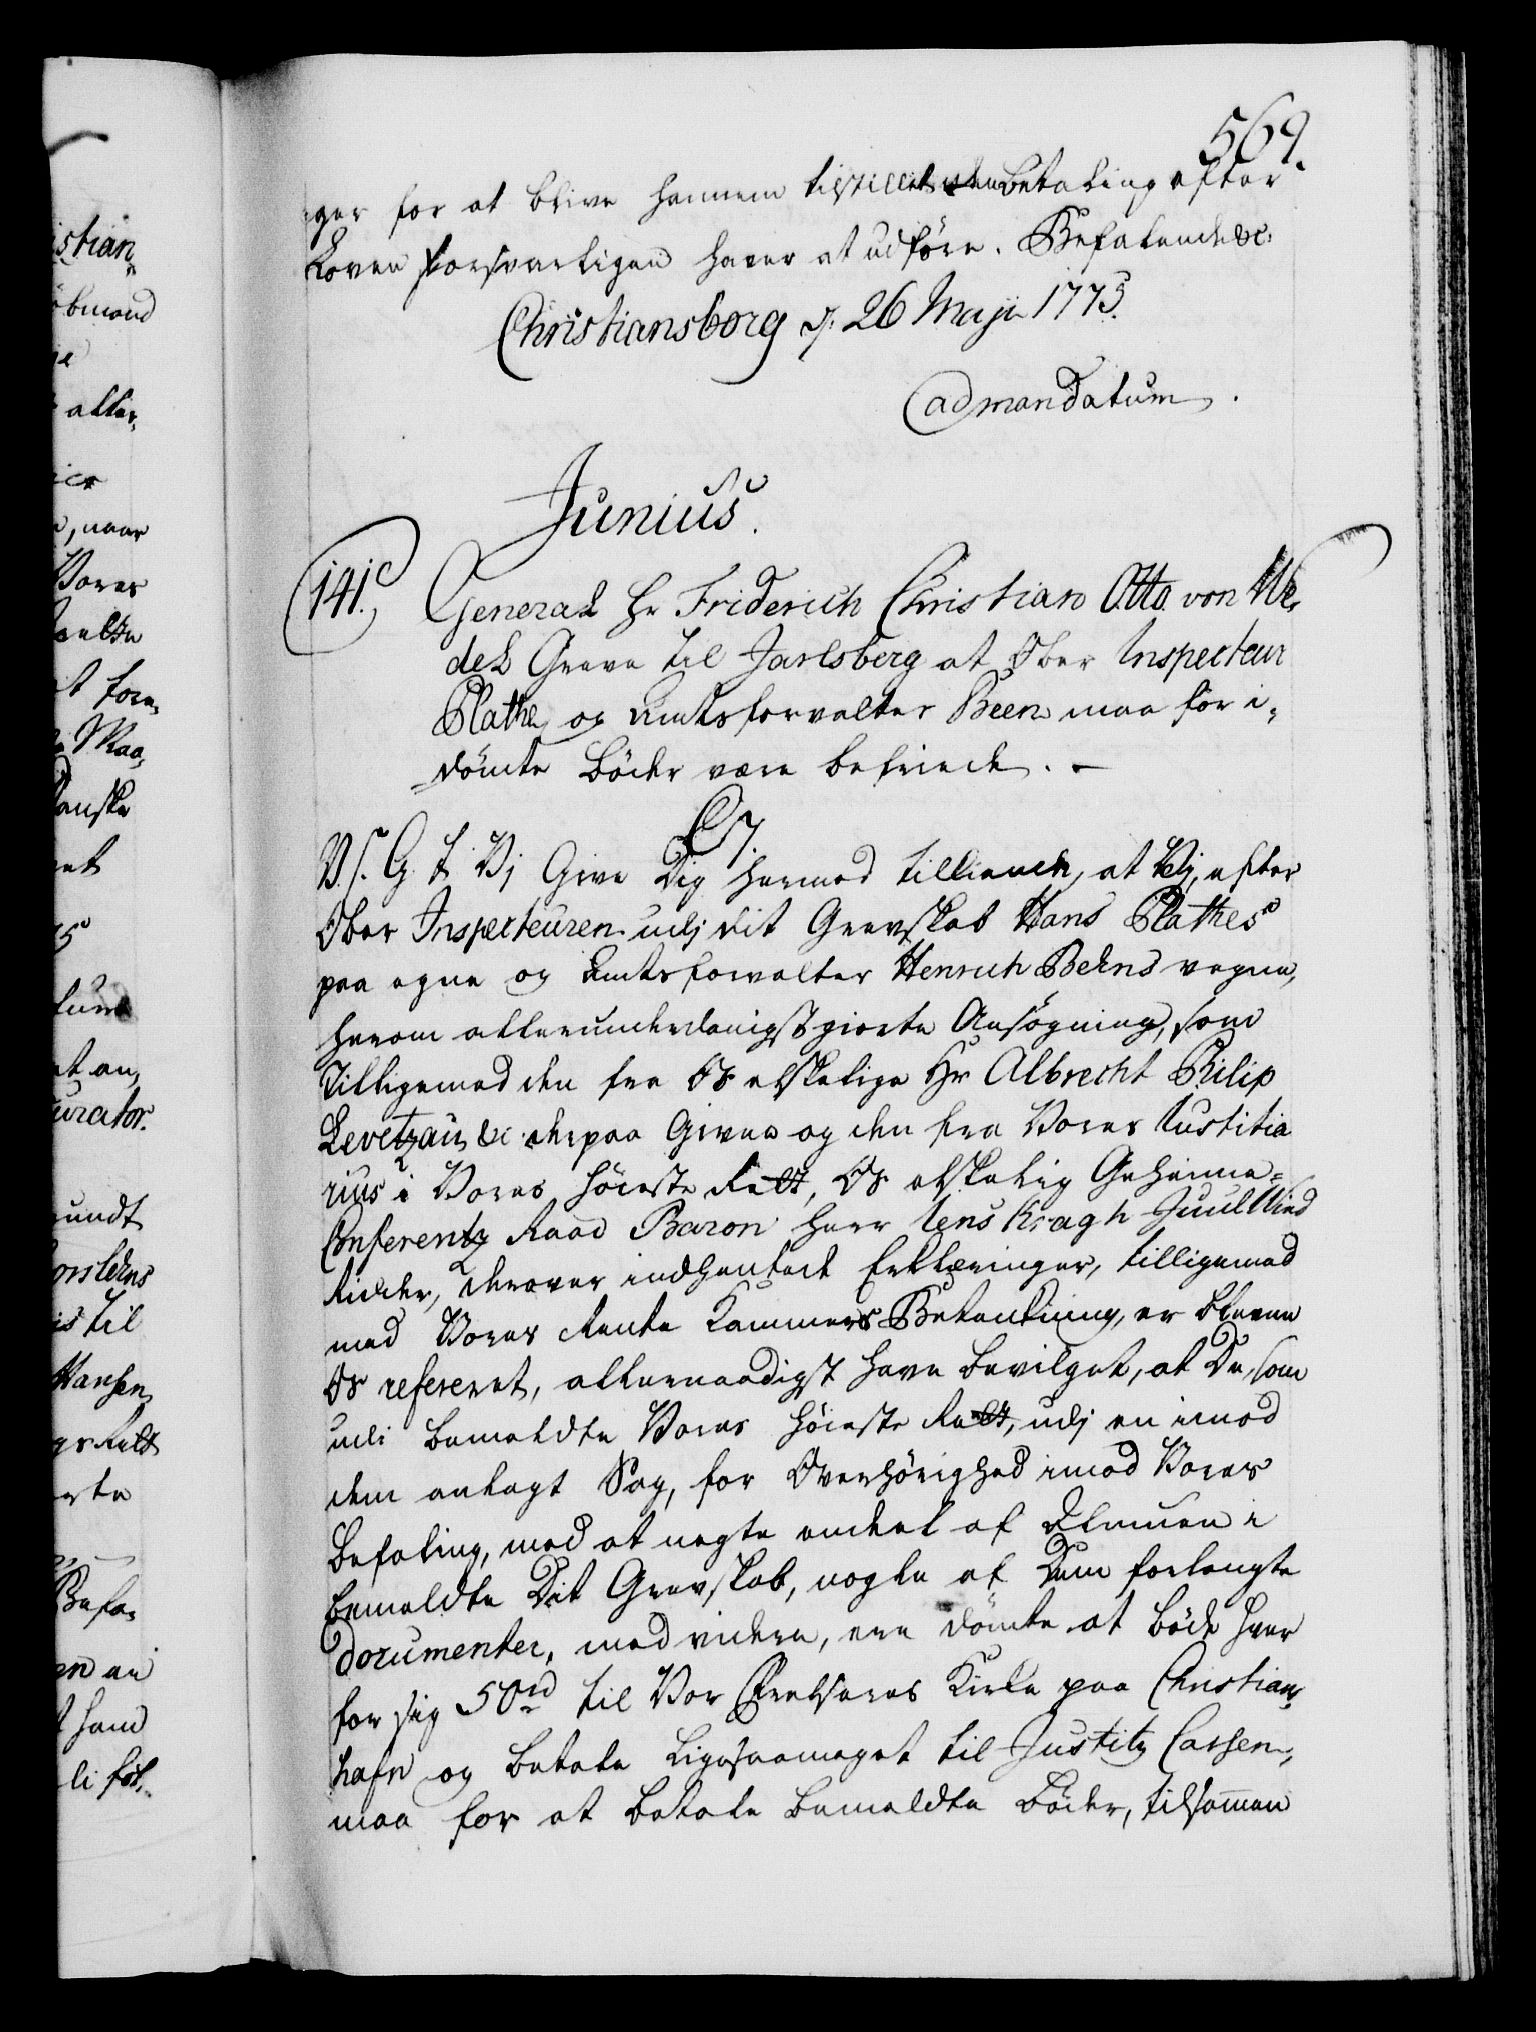 569.
ger for at blive hannem tilstillet uden betaling efter
Loven forsvarligen haver at udføre. Befalende &c:
Christiansborg d: 26 Maji 1775.
ad mandatum.
Junius.
141.
General Hr Friderich Christian Otto von We-
del Greve til Jarlsberg at Ober Inspecteur
Plathe og Amtsforvalter Been maa for i-
dömte Böder være befriede. –
C7.
V. s. G. t. Vj Give Dig hermed tilkiende, at Vj, efter
Ober Inspecteuren udj dit Grevskab Hans Plathes
paa egne og Amtsforvalter Henrich Behns vegne,
herom allerunderdanigst giorte Ansøgning, som
tilligemed den fra Os elskelige Hr Albrecht Philip
Levetzau &c. derpaa Given og den fra Vores Justitia
rius i Vores Höieste Rett, Os elskelig Geheime-
Conferentz Raad Baron Herr Jens Kragh Juul Wind
Ridder, derover indhentede Erklæringer, tilligemed
med Vores Rente Kammers Betænkning, er bleven
Os refereret, allernaadigst have bevilget, at De, som
udi bemeldte Vores Höieste Rett, udj en imod
dem anlagt Sag, for Overhörighed imod Vores
Befaling, med at negte endeel af Almuen i
bemeldte Dit Grevskab, nogle af Dem forlangte
documenter, med videre, ere dömte at böde hver
for sig 50 rd til Vor Frelseres Kirke paa Christians
hafn og betale ligesaameget til Justitz Cassen,
maa for at betale bemeldte Böder, tilsammen